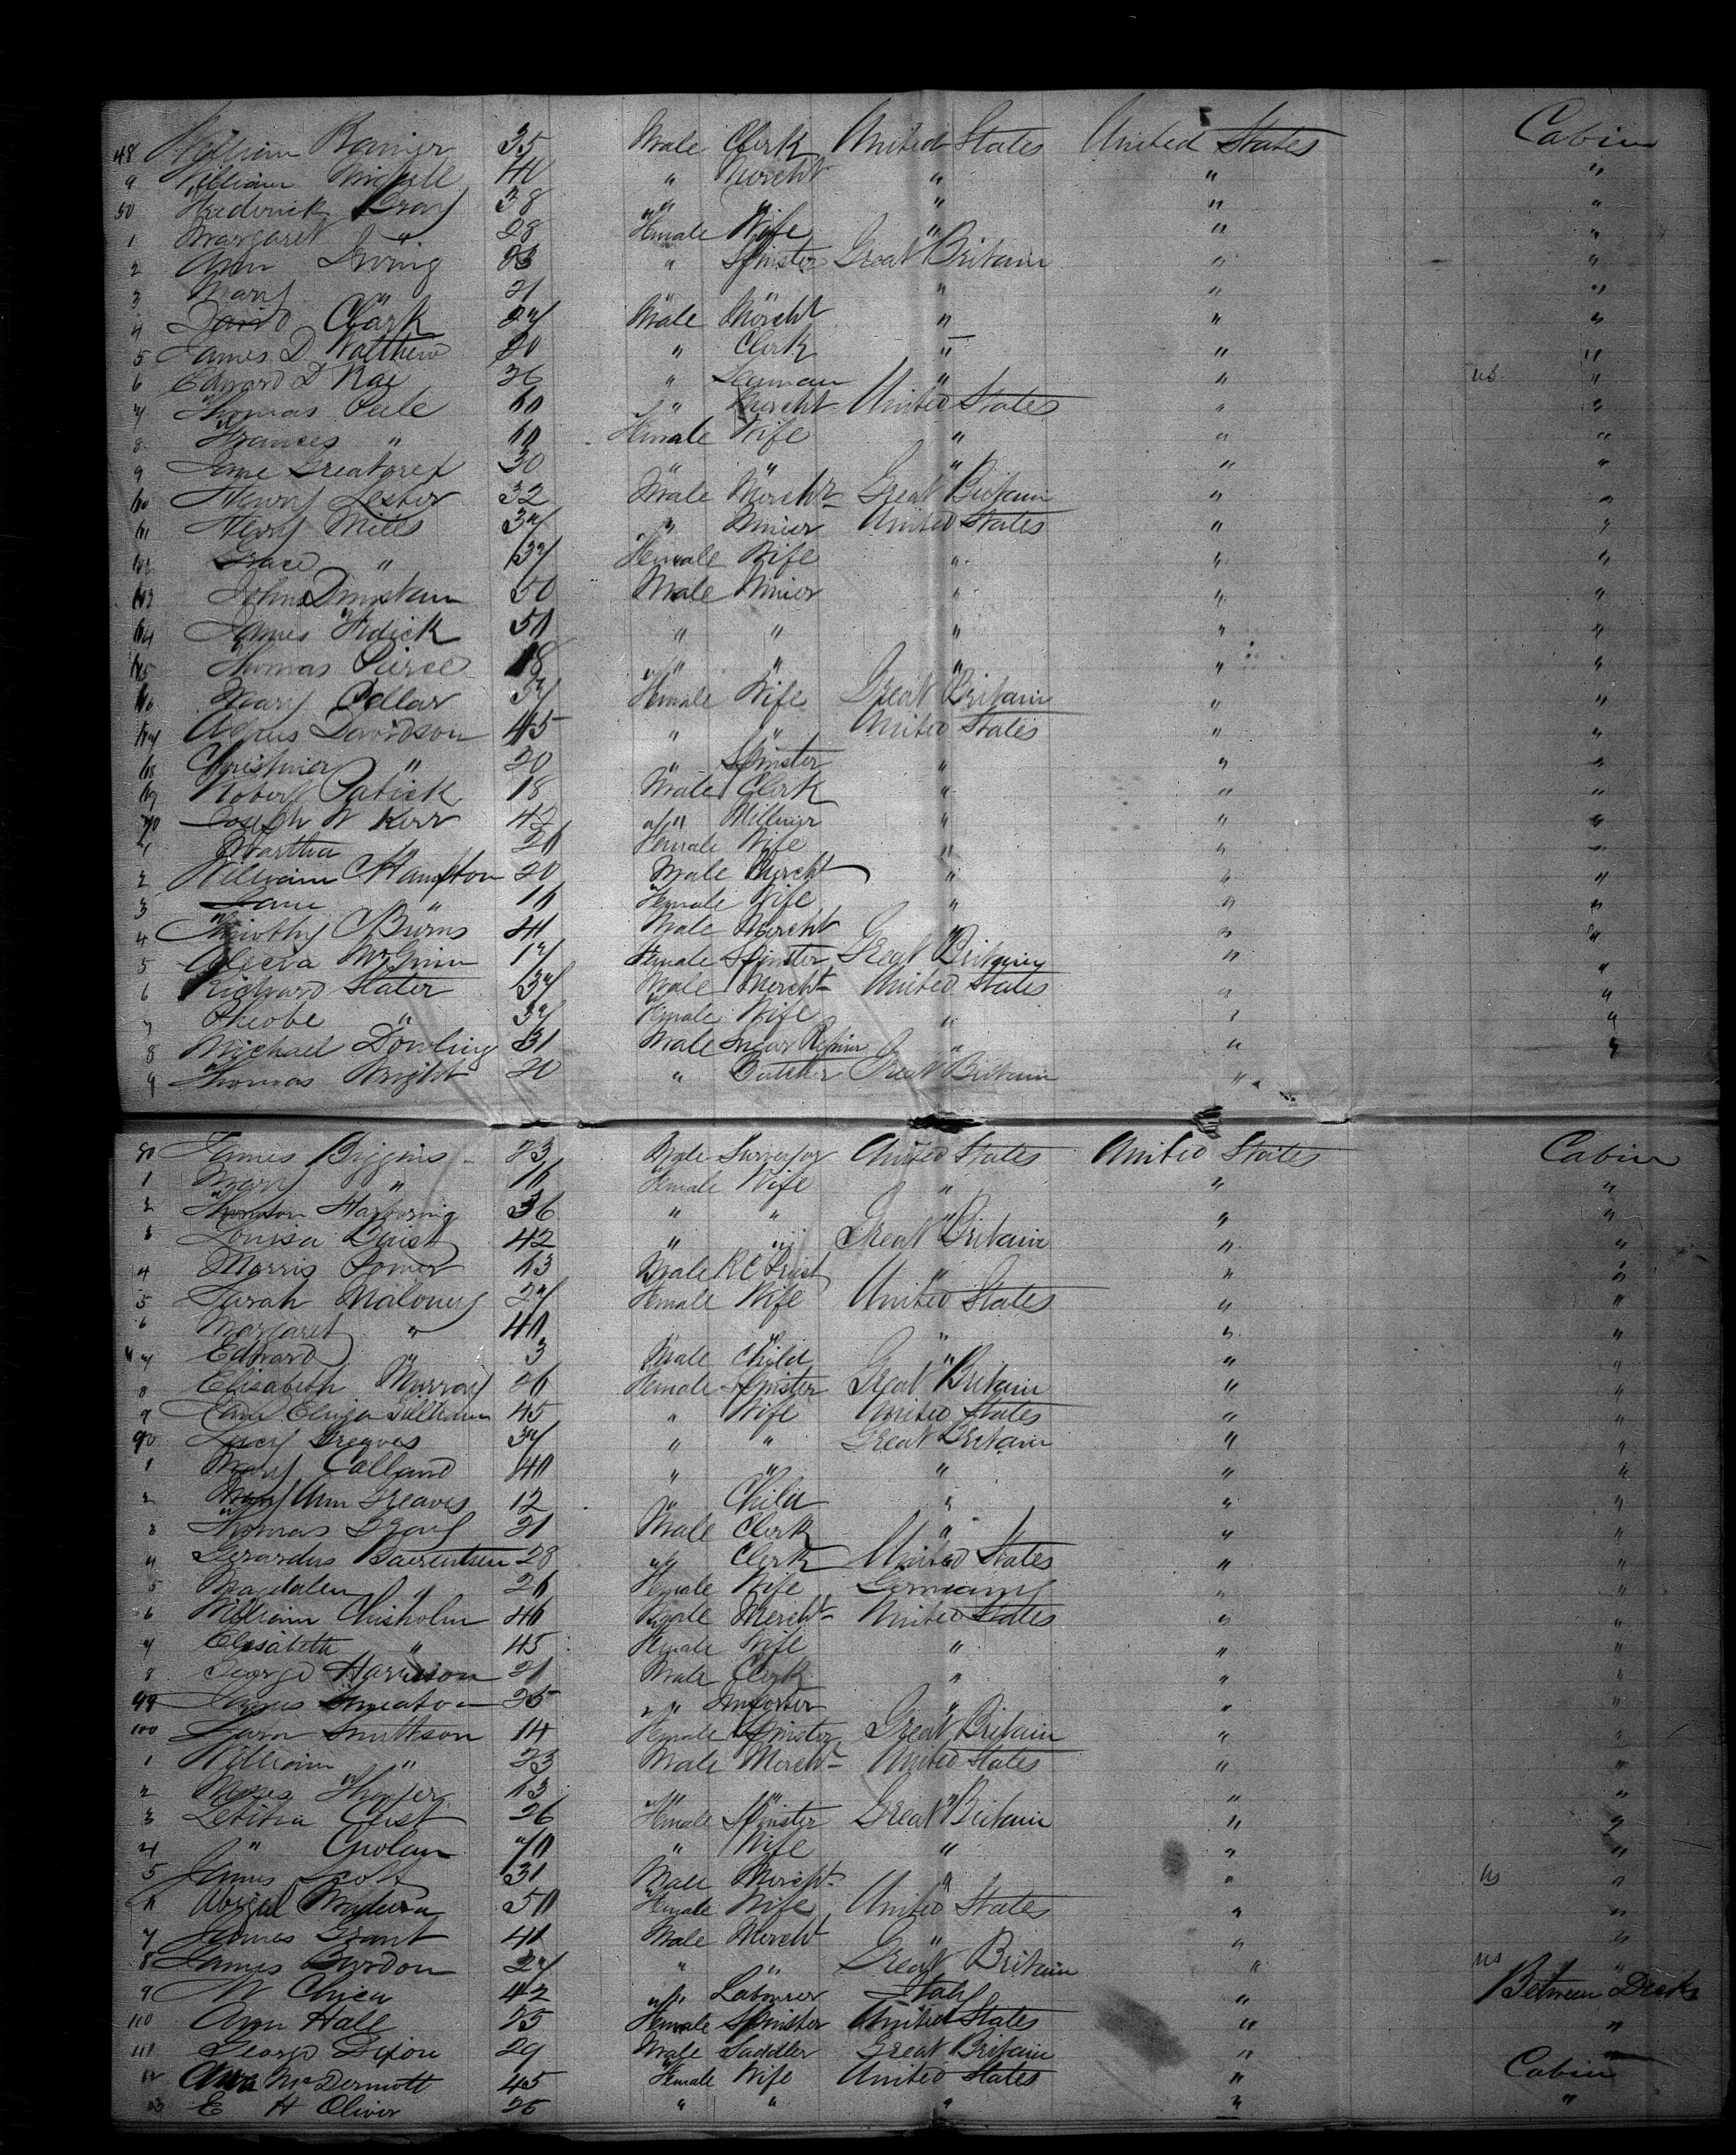 48 William Rainier 35 Male Clerk United States United States Cabin
9 William 40 " Mercht " " "
50 Frederick Gray 38 " " " " "
1 Margaret " 28 Female Wife " " "
2 Ann Irving 23 " Spinster Great Britain " "
3 Mary " 21 " " " " "
4 David Clark 24 Male Mercht " " "
5 James D Walthew 20 " Clerk " " "
6 Edward D Rae 26 " " " us "
7 Thomas Peele 60 " Mercht United States " "
8 Frances " 60 Female Wife " " "
9 Jane Greatorex 30 " " " " "
60 Henry Lester 32 Male Mercht Great Britain " "
61 Henry Mills 37 " Miner United States " "
62 Grace " 37 Female Wife " " "
63 John 50 Male Miner " " "
64 James Fidick 50 " " " " "
65 Thomas Pierce 18 " " " " "
66 Mary Pellar 37 Female Wife Great Britain " "
67 Agnes Davidson 45 " " United States " "
68 Christina " 20 " Spinster " " "
69 Robert Patick 18 Male Clerk " " "
70 Joseph W Kerr 42 " Milliner " " "
1 Martha " 26 Female Wife " " "
2 William Hampton 20 Male Mercht " " "
3 Jane " 16 Female Wife " " "
4 Timothy Burns 41 Male Mercht " " "
5 Alecia McGinn 17 Female Spinster Great Britain " "
6 Richard Slater 37 Male Mercht United States " "
7 Pheobe " 37 Female Wife " " "
8 Michael Dowling 31 Male Sugar Refiner " " "
9 Thomas Wright 20 " Butcher Great Britain "
80 James Biggins 23 Male Surveyor United States United States Cabin
1 Mary " 16 Female Wife " " "
2 36 " " " " "
3 Louisa 42 " " Great Britain " "
4 Morris Power 63 Male R C Priest " " "
5 Sarah Maloney 27 Female Wife United States " "
6 Margaret " 40 " " " " "
7 Edward " 3 Male Child " " "
8 Elisabeth Murray 26 Female Spinster Great Britain " "
9 Jane Eliza 45 " Wife United States " "
90 Lucy Greaves 37 " " Great Britain " "
1 Mary Calland 40 " " " " "
2 Mary Ann Greaves 12 " Child " " "
3 Thomas Gray 21 Male Clerk " " "
4 Gerardus Baerentsen 28 " Clerk United States " "
5 Magdalen " 26 Female Wife Germany " "
6 William Chisholm 46 Male Mercht United States " "
7 Elisabeth " 45 Female Wife " " "
8 George Harrison 21 Male Clerk " " "
99 James Smeaton 25 " Importer " " "
100 Sarah Smithson 14 Female Spinster Great Britain " "
1 William " 23 Male Mercht United States " "
2 Moses 63 " " " " "
3 Letitia Crist 26 Female Spinster Great Britain " "
4 " 70 " Wife " " "
5 James Scott 31 Male Mercht " " us "
6 Abigal Madeira 50 Female Wife United States " "
7 James Grant 41 Male Mercht " " "
8 James Burdon 27 " " Great Britain " us "
9 M Chica 42 " Labourer Italy " Between Decks
110 Ann Hale 25 Female Spinster United States " "
111 George Dixon 29 Male Saddler Great Britain " "
12 Ann McDermott 45 Female Wife United States " Cabin
13 E H Oliver 25 " " " " "